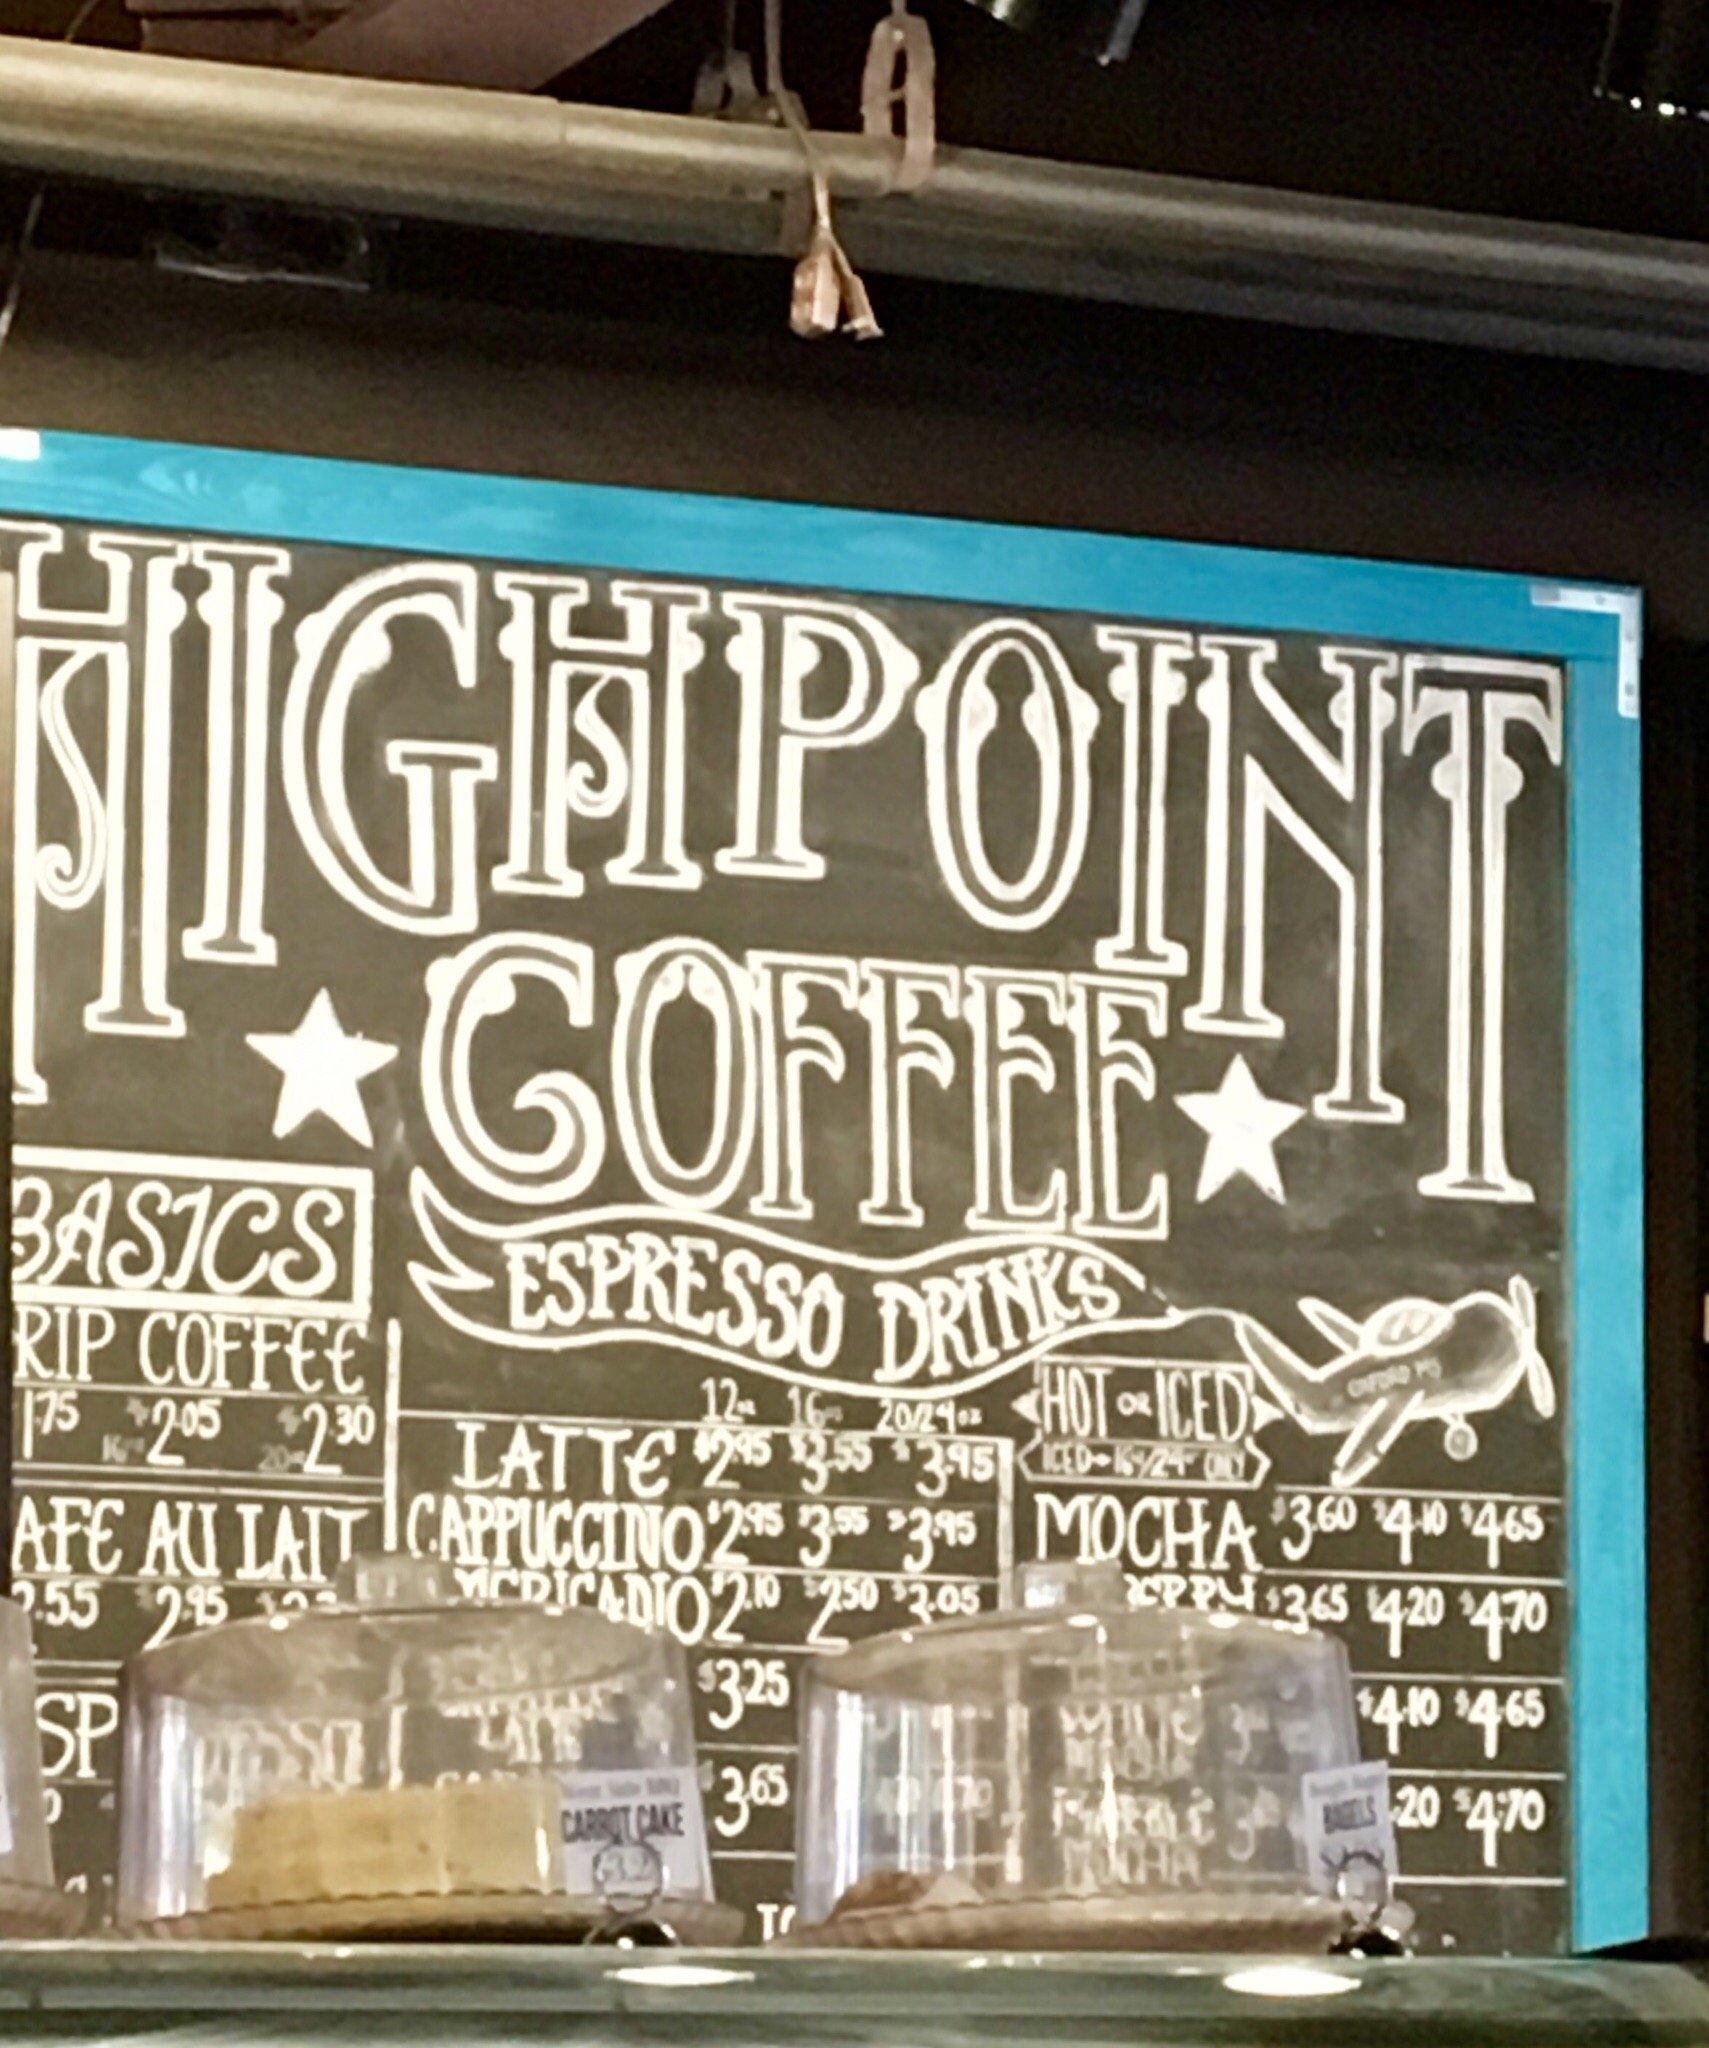 HIGHPOINT
COFFEE
BASICS
RIP COFFEE
1.75 $2.05 $2.30
AFE AU LAIT
2.55 $2.95
SP
ESPRESSO DRINKS
12oz 16oz 20/24oz
LATTE $2.95 $3.55 $3.95
CAPPUCCINO $2.95 $3.55 $3.95
MERICANO $2.10 $2.50 $3.05
$3.25
LATTE
$3.65
HOT OR ICED
ICED - 16oz/24oz ONLY
OXFORD MS
MOCHA $3.60 $4.10 $4.65
$3.65 $4.20 $4.70
WHITE MOCHA $4.10 $4.65
MOCHA .20 $4.70
CARROT CAKE
BAGELS